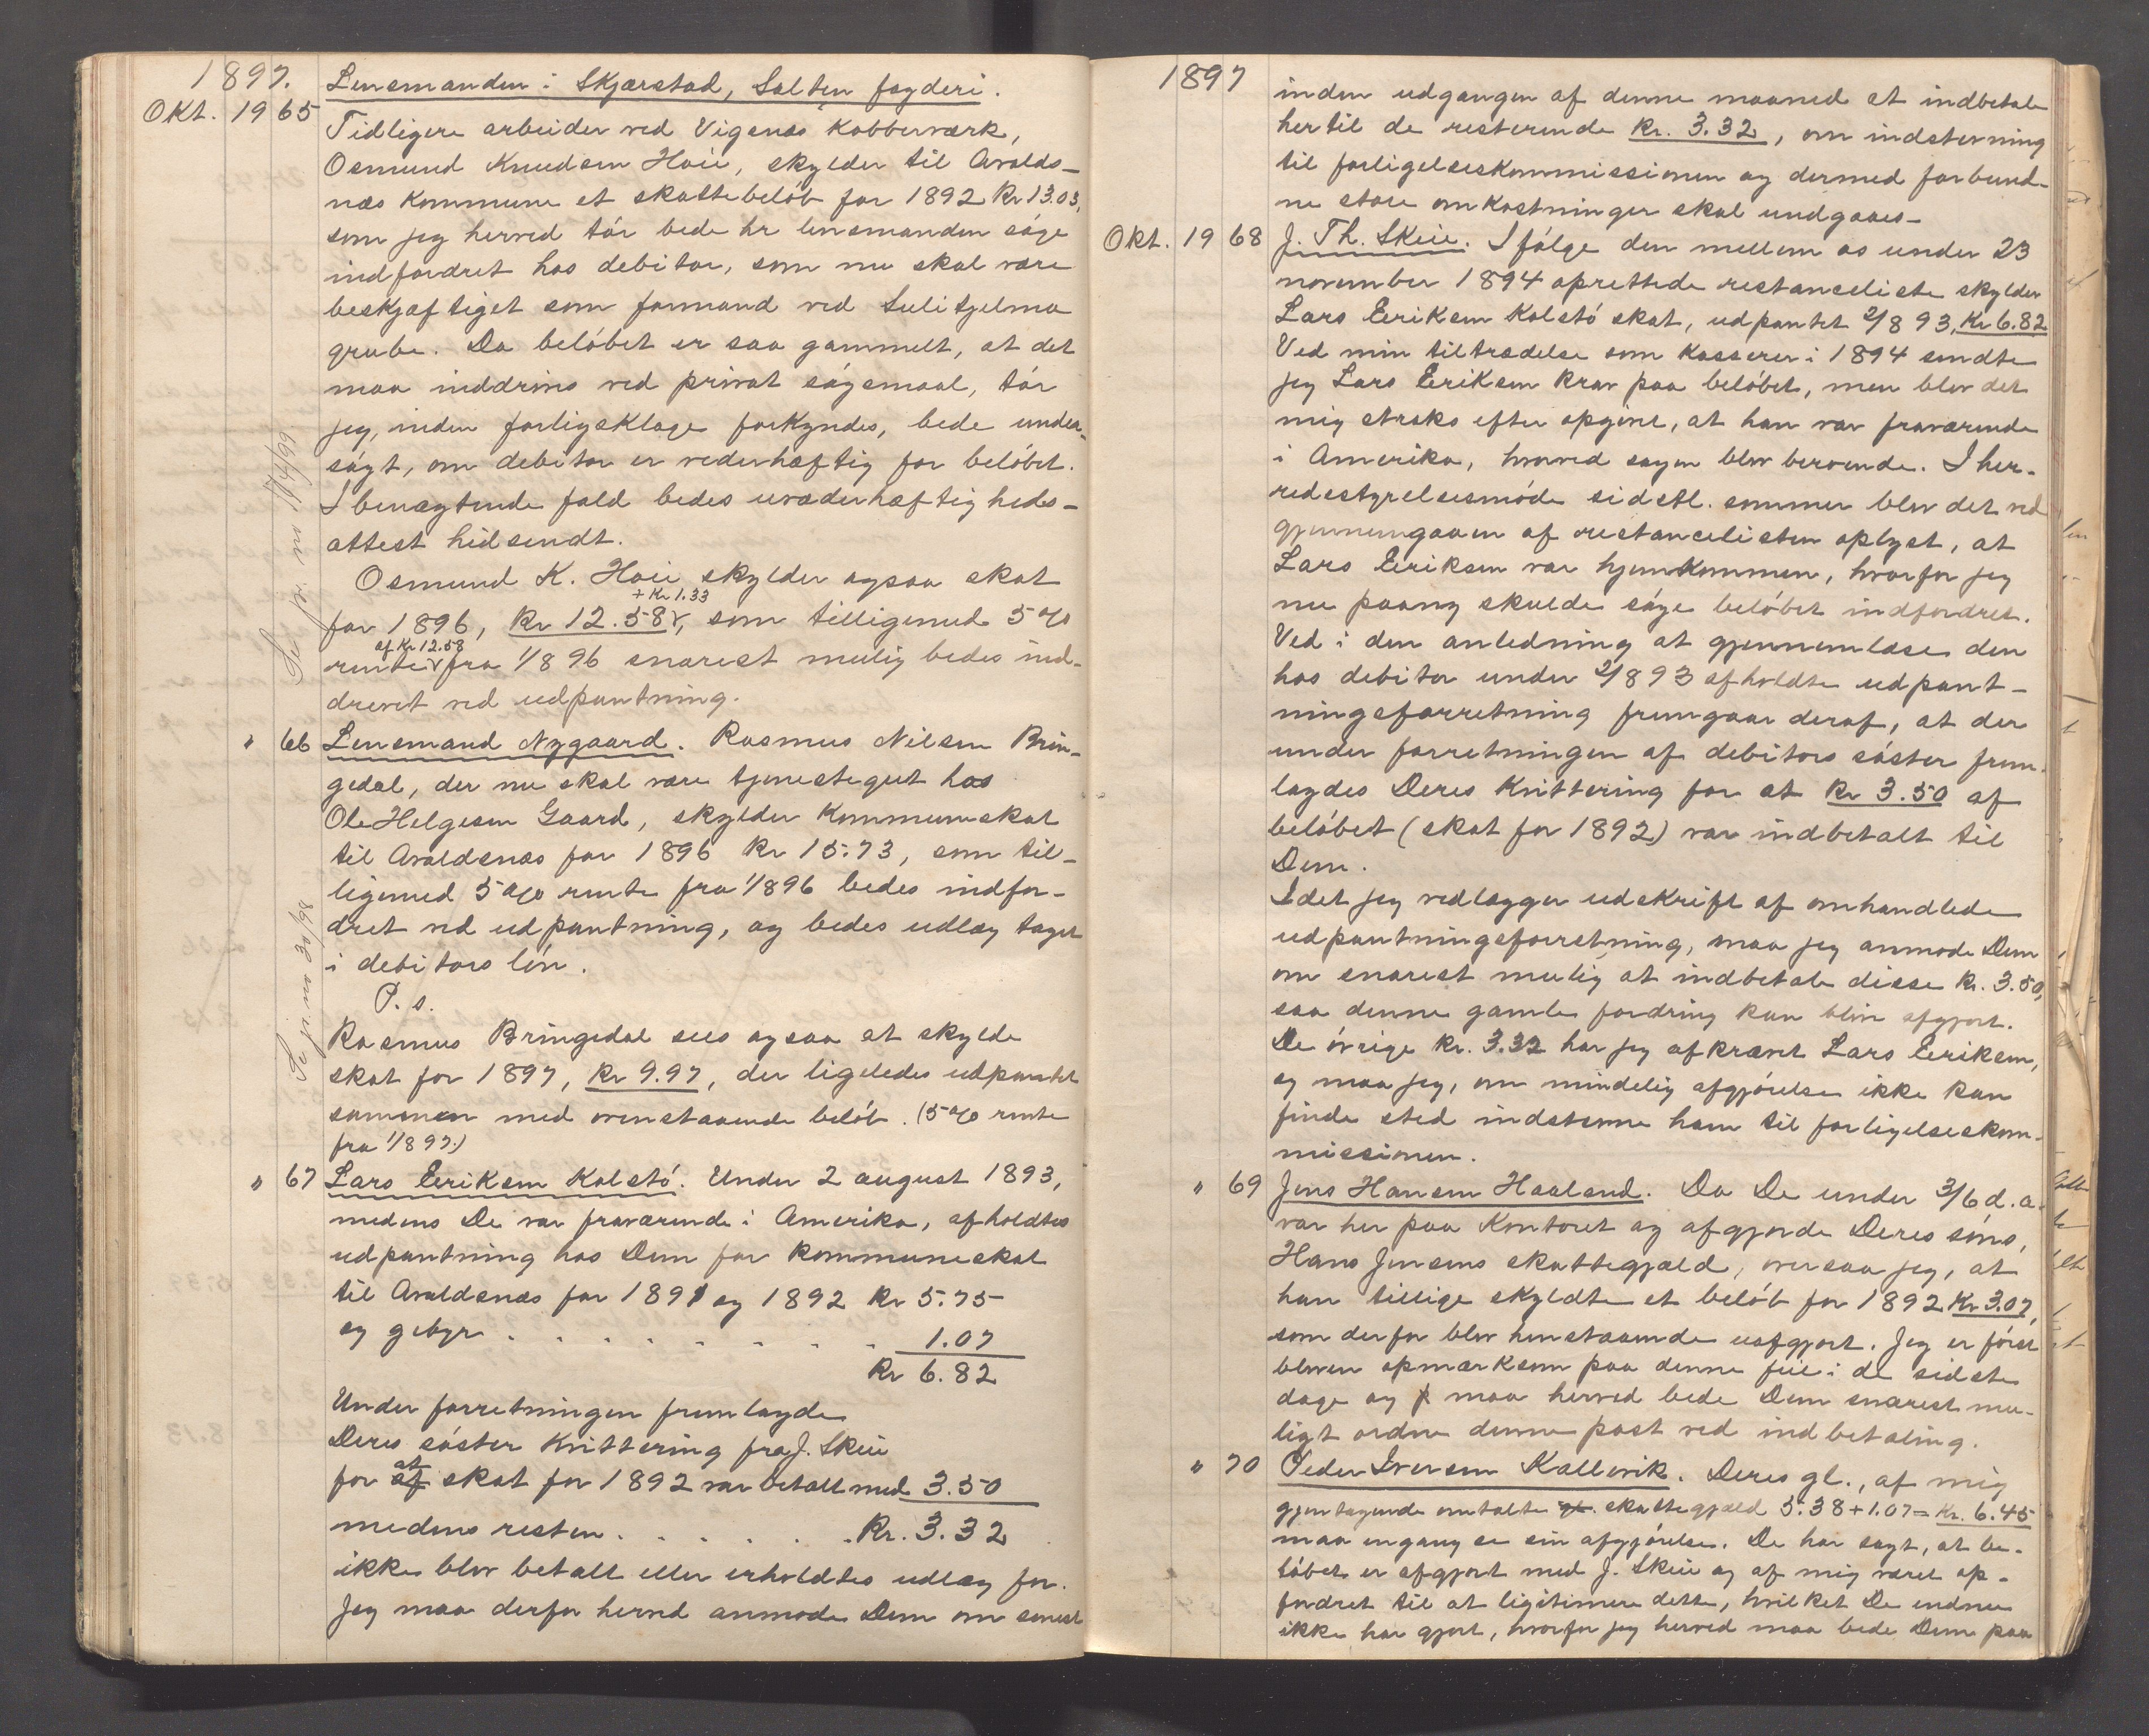 1897.
Lensmanden i Skjærstad, Salten fogderi.
Okt. 19 65
Tidligere arbeider ved Vigsnæs Kobberværk,
Osmund Knudsen Hoie, skylder til Avalds-
næs Kommune et skattebeløb for 1892 Kr 13.03,
som jeg herved tør bede hr lensmanden søge
indfordret hos debitor, som nu skal være
beskjæftiget som formand ved Sulitjelma
grube. Da beløbet er saa gammelt, at det
maa inddrives ved privat søgsmaal, tør
jeg, inden forligsklage forkyndes, bede under-
søgt, om debitor er vederhæftig for beløbet.
I benægtende fald bedes uvæderhæftigheds-
attest hidsendt.
Osmund K. Hoie skylder ogsaa skat
+ Kr 1.33
for 1896, Kr 12.58, som tilligemed 5%
af Kr 12.58
rente fra 1/8 96 snarest mulig bedes ind-
drevet ved udpantning.
Se jr. no 174/99
" 66 Lensmand Nygaard. Rasmus Nilsen Brin-
gedal, der nu skal være tjenestegut hos
Ole Helgesen Gaard, skylder Kommuneskat
til Avaldsnæs for 1896 Kr 15.73, som til-
ligemed 5% rente fra 1/8 96 bedes indfor-
dret ved udpantning, og bedes udlæg taget
i debitors løn.
P.s.
Rasmus Bringedal sees ogsaa at skylde
skat for 1897, Kr 9.97, der ligeledes udpantet
sammen med ovenstaaende beløb. (5% rente
fra 1/8 97.)
Se jr. no 30/98
" 67 Lars Eeriksen Kolstø. Under 2 august 1893,
medens De var fraværende i Amerika, afholdtes
udpantning hos Dem for kommuneskat
til Avaldsnæs for 1891 og 1892 Kr 5.75
og gebyr . . . . . . . . 1.07
Kr 6.82
Under forretningen fremlagde
Deres søster Kvittering fra J. Skeie
at
for af skat for 1892 var betalt med 3.50
medens resten . . . . . . Kr. 3.32
ikke blev betalt eller erholdtes udlæg for.
Jeg maa derfor herved anmode Dem om senest
1897
inden udgangen af denne maaned at indbetale
hertil de resterende Kr. 3.32, om indstevning
til forligelseskommissionen og dermed forbund-
ne store omkostninger skal undgaaes-
Okt. 19 68 J. Th. Skeie. Ifølge den mellem os under 23
november 1894 oprettede restanceliste skylder
Lars Eeriksen Kolstø skat, udpantet 2/8 93, Kr 6.82
Ved min tiltrædelse som Kasserer i 1894 sendte
jeg Lars Eeriksen krav paa beløbet, men blev det
mig straks efter opgivet, at han var fraværende
i Amerika, hvorved sagen blev beroende. I her-
redsstyrelsesmøde sidstl. sommer blev det ved
gjennemgaaen af restancelisten oplyst, at
Lars Eeriksen var hjemkommen, hvorfor jeg
nu paany skulde søge beløbet indfordret.
Ved i den anledning at gjennemlæse den
hos debitor under 2/8 93 afholdte udpant-
ningsforretning fremgaar deraf, at der
under forretningen af debitors søster frem-
lagdes Deres Kvittering for at Kr 3.50 af
beløbet (skat for 1892) var indbetalt til
Dem.
Idet jeg vedlægger udskrift af omhandlede
udpantningsforretning, maa jeg anmode Dem
om snarest mulig at indbetale disse Kr. 3.50,
saa denne gamle fordring kan blive afgjort.
De øvrige Kr. 3.32 har jeg afkrævet Lars Eeriksen,
og maa jeg, om mindelig afgjørelse ikke kan
finde sted indstevne ham til forligelseskom-
missionen.
" 69 Jens Hansen Haaland. Da De under 3/6 d.a.
var her paa Kontoret og afgjorde Deres søns,
Hans Jensens skattegjæld, oversaa jeg, at
han tillige skyldte et beløb for 1892 Kr 3.07,
som derfor blev henstaaende uafgjort. Jeg er først
bleven opmærksom paa denne feil i de sidste
dage og maa herved bede Dem snarest mu-
ligt ordne denne post ved indbetaling.
" 70 Peder Iversen Kallevik. Deres gl., af mig
gjentagende omtalte gl. skattegjæld 5.38 + 1.07 = Kr. 6.45
maa engang se sin afgjørelse. De har sagt, at be-
løbet er afgjort med J. Skeie og af mig været op-
fordret til at legitimere dette, hvilket De endnu
ikke har gjort, hvorfor jeg herved maa bede Dem paa